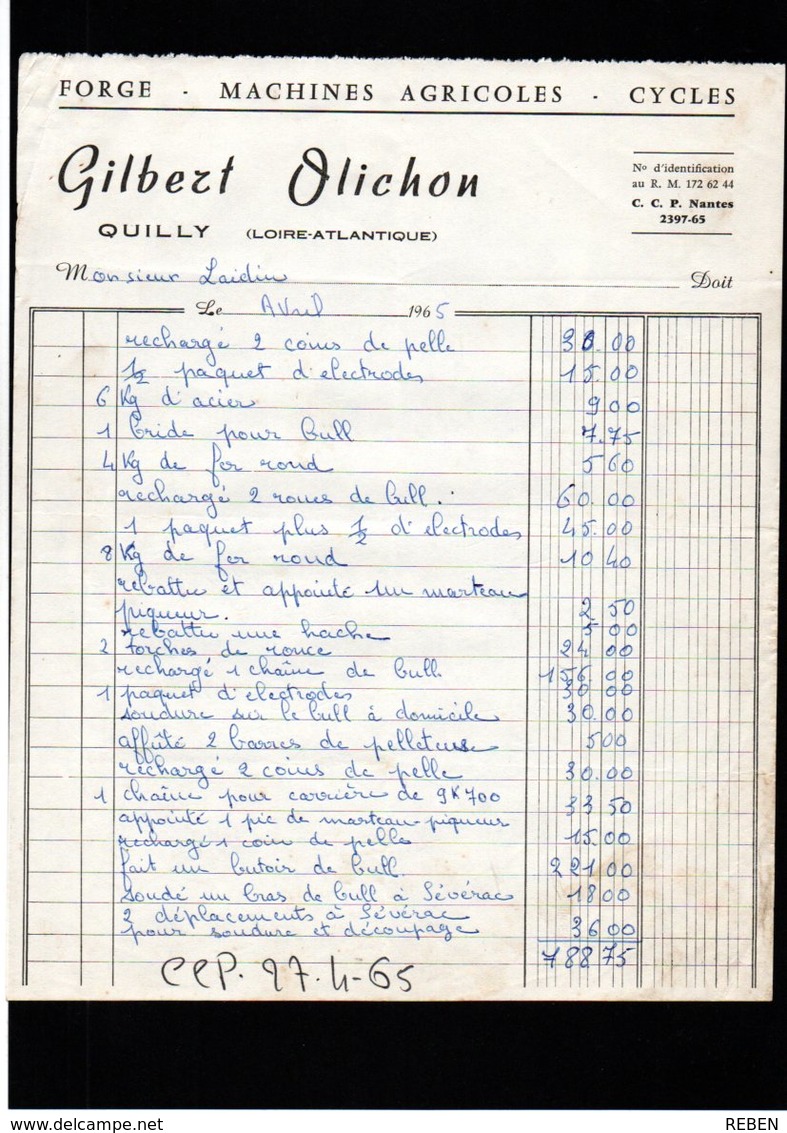 FORGE - MACHINES AGRICOLES - CYCLES
Gilbert Olichon
QUILLY (LOIRE-ATLANTIQUE)
No d'identification
au R. M. 172 62 44
C. C. P. Nantes
2397-65
Monsieur Laidin Doit
Le Avril 1965
rechargé 2 coins de pelle 30.00
1/2 paquet d'electrodes 15.00
6 Kg d'acier 9 00
1 bride pour bull 7.75
4 Kg de fer rond 5 60
rechargé 2 roues de bull. 60.00
1 paquet plus 1/2 d'electrodes 45.00
8 Kg de fer rond 10 40
rebattu et appointé 1 un marteau
piqueur. 2 50
rebattu une hache 5 00
2 torches de ronce 24 00
rechargé 1 chaîne de bull. 156.00
1 paquet d'electrodes 30 00
soudure sur le bull à domicile 30.00
affûté 2 barres de pelleteuse 5 00
rechargé 2 coins de pelle 30.00
1 chaîne pour carrière de 9K700 33 50
appointé 1 pic de marteau-piqueur
rechargé 1 coin de pelle 15.00
fait un butoir de bull. 221 00
soudé un bras de bull à Sévérac 18 00
2 déplacements à Sévérac
pour soudure et découpage 36 00
788 75
CCP. 27.4-65
delcampe.net
REBEN